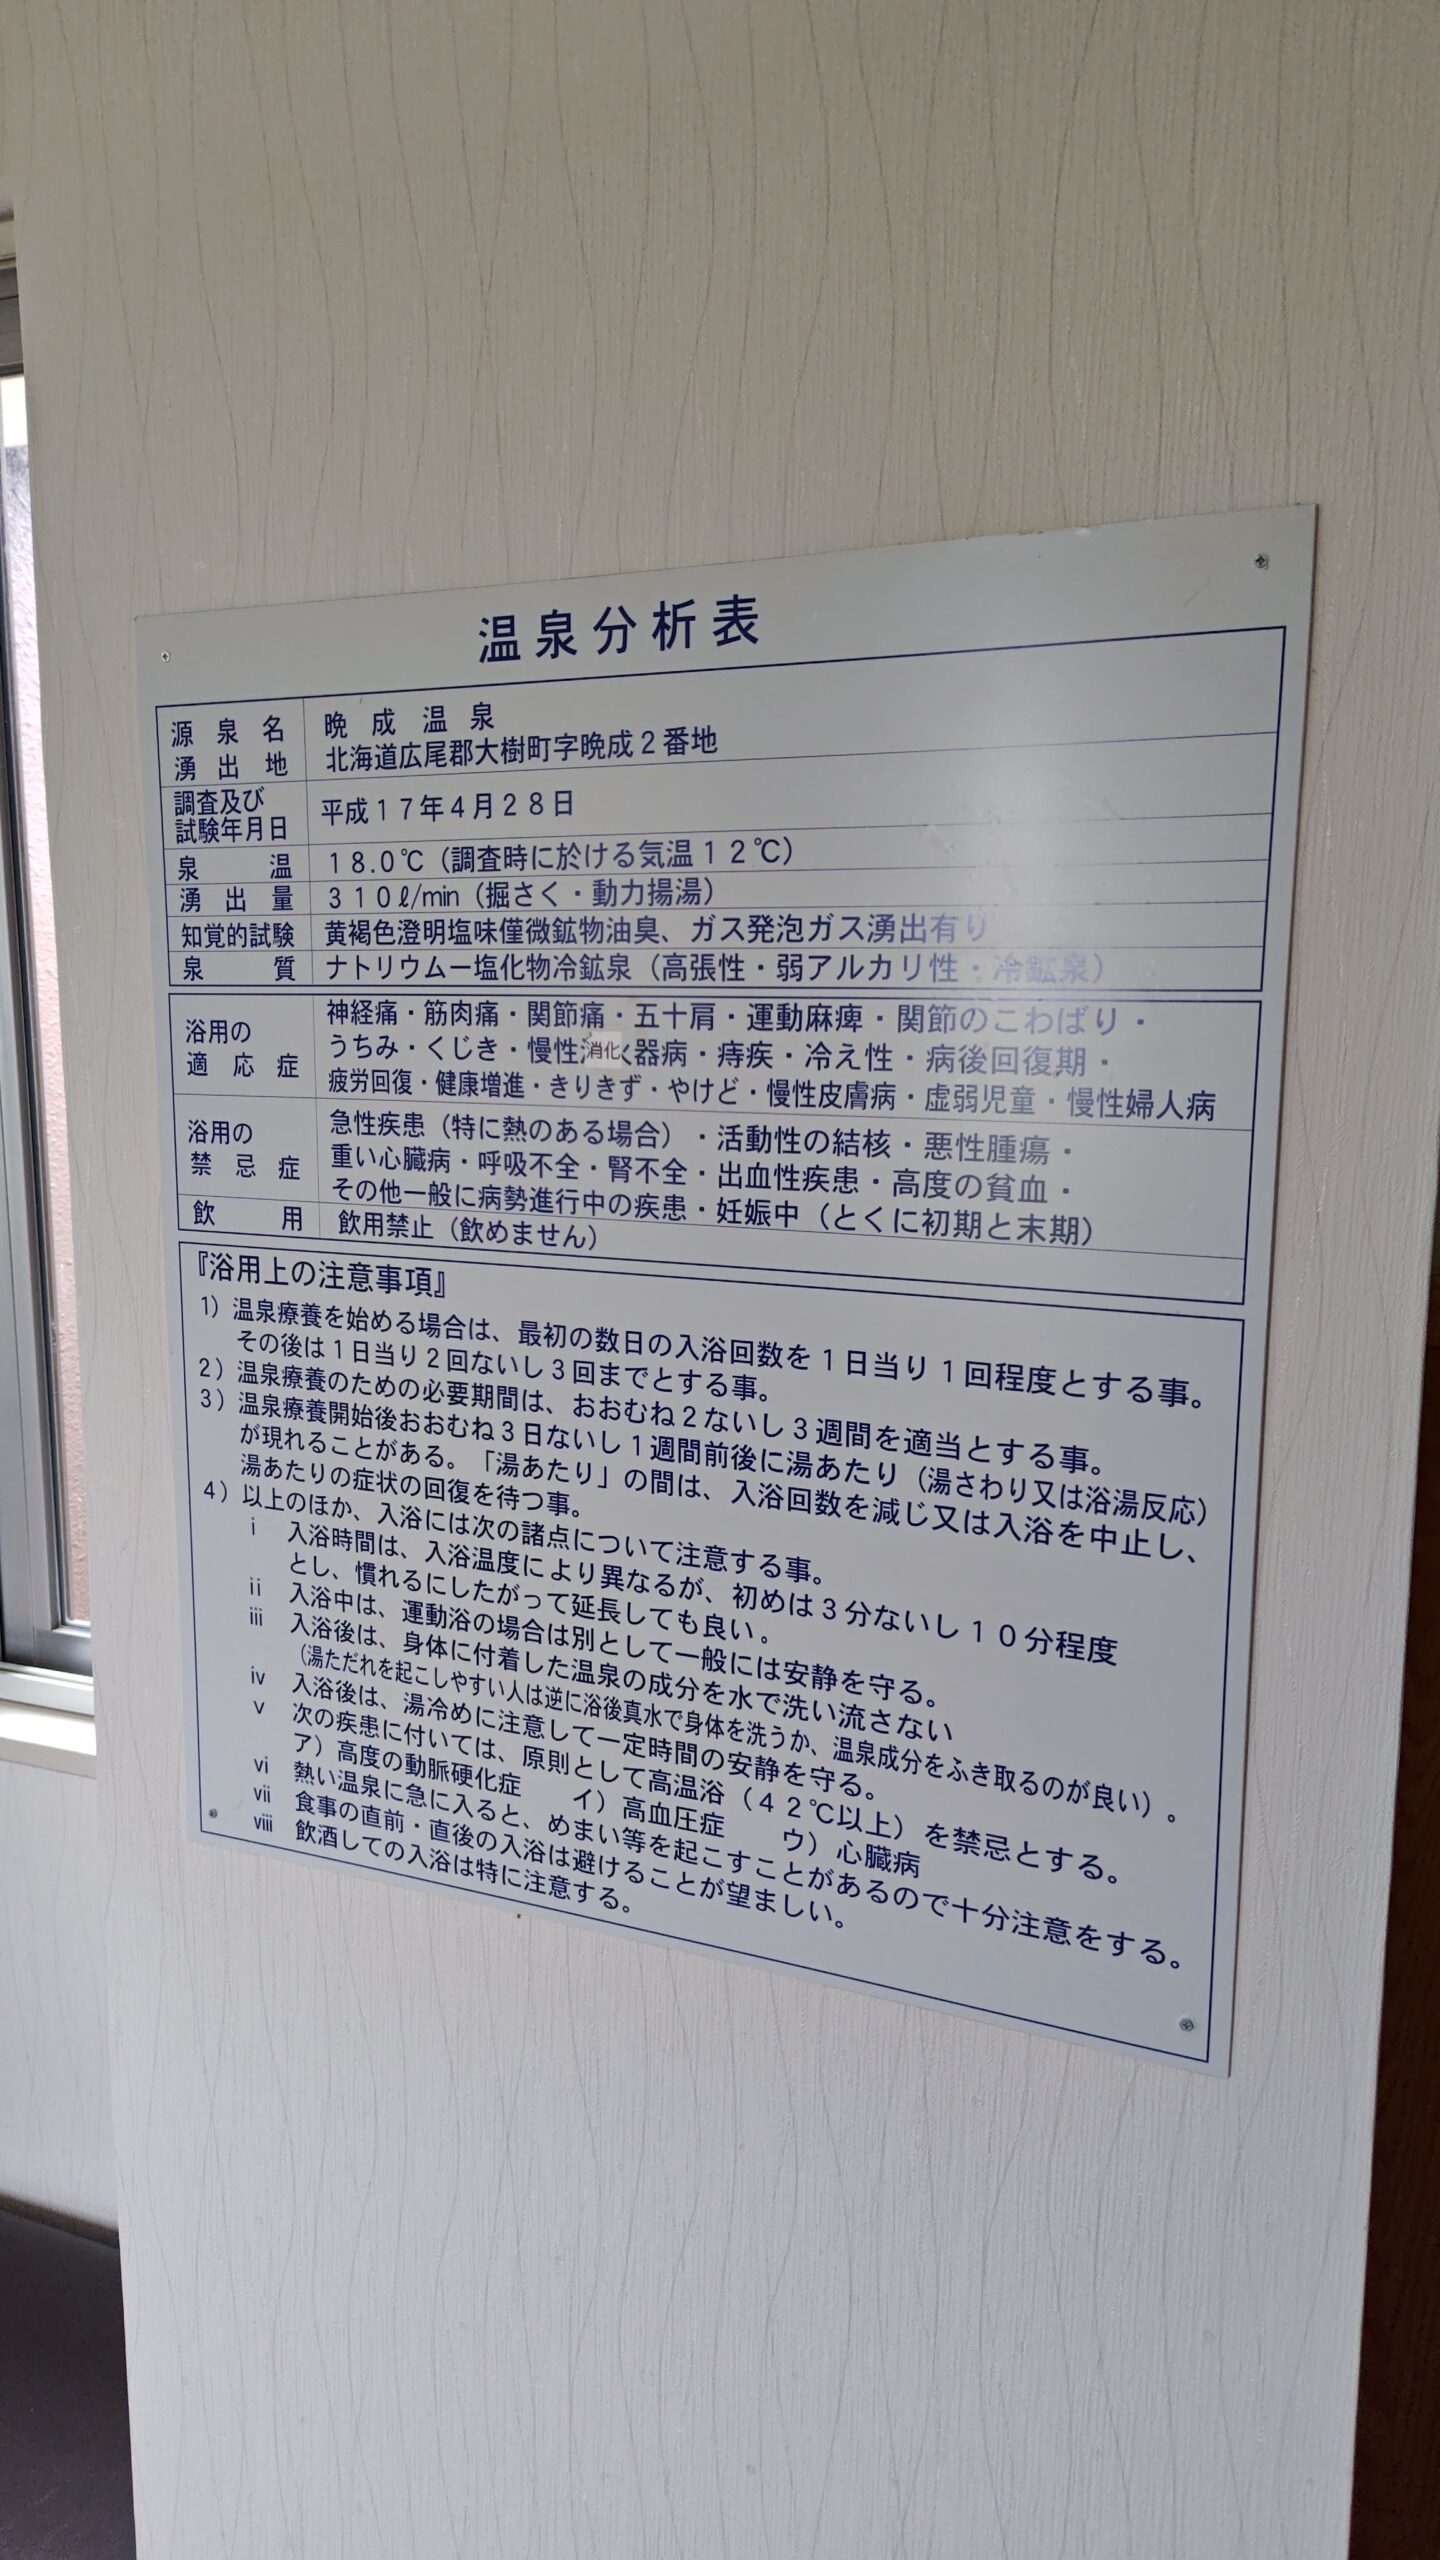 温泉分析表
源泉名 晩成温泉
湧出地 北海道広尾郡大樹町字晩成2番地
調査及び
試験年月日 平成17年4月28日
泉温 18.0℃(調査時に於ける気温12℃)
湧出量 310ℓ/min(掘さく・動力揚湯)
知覚的試験 黄褐色澄明塩味僅微鉱物油臭、ガス発泡ガス湧出有り
泉質 ナトリウムー塩化物冷鉱泉(高張性・弱アルカリ性・冷鉱泉)
浴用の
適応症
神経痛・筋肉痛・関節痛・五十肩・運動麻痺・関節のこわばり・
うちみ・くじき・慢性消化器病・痔疾・冷え性・病後回復期・
疲労回復・健康増進・きりきず・やけど・慢性皮膚病・虚弱児童・慢性婦人病
浴用の
禁忌症
急性疾患(特に熱のある場合)・活動性の結核・悪性腫瘍・
重い心臓病・呼吸不全・腎不全・出血性疾患・高度の貧血・
その他一般に病勢進行中の疾患・妊娠中(とくに初期と末期)
飲用 飲用禁止(飲めません)
『浴用上の注意事項』
1)温泉療養を始める場合は、最初の数日の入浴回数を1日当り1回程度とする事。
その後は1日当り2回ないし3回までとする事。
2)温泉療養のための必要期間は、おおむね2ないし3週間を適当とする事。
3)温泉療養開始後おおむね3日ないし1週間前後に湯あたり(湯さわり又は浴湯反応)
が現れることがある。「湯あたり」の間は、入浴回数を減じ又は入浴を中止し、
湯あたりの症状の回復を待つ事。
4)以上のほか、入浴には次の諸点について注意する事。
ⅰ 入浴時間は、入浴温度により異なるが、初めは3分ないし10分程度
とし、慣れるにしたがって延長しても良い。
ⅱ 入浴中は、運動浴の場合は別として一般には安静を守る。
ⅲ 入浴後は、身体に付着した温泉の成分を水で洗い流さない
(湯ただれを起こしやすい人は逆に浴後真水で身体を洗うか、温泉成分をふき取るのが良い)。
ⅳ 入浴後は、湯冷めに注意して一定時間の安静を守る。
ⅴ 次の疾患に付いては、原則として高温浴(42℃以上)を禁忌とする。
ア)高度の動脈硬化症 イ)高血圧症 ウ)心臓病
ⅵ 熱い温泉に急に入ると、めまい等を起こすことがあるので十分注意をする。
ⅶ 食事の直前・直後の入浴は避けることが望ましい。
ⅷ 飲酒しての入浴は特に注意する。